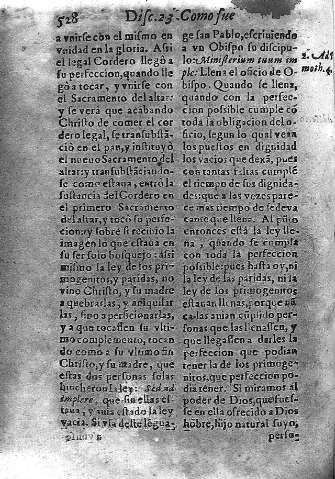 528 Disc. 23. Como fue
a vnirse con el mismo en
vnidad en la gloria. Assi
el legal Cordero llegò a
su perfeccion, quando lle
gò a tocar, y vnirse con
el Sacramento del altar:
y se verà que acabando
Christo de comer el cor
dero legal, se transubstã
ciò en el pan, y instituyò
el nueuo Sacramento del
altar; y transubstãciando-
se como estaua, entrò la
sustancia del Cordero en
el primero Sacramento
del altar, y tocò su perfe-
cion; y sobre si recibio la
imagen lo que estaua en
su ser solo bosquejo: assi
mismo la ley de los pri-
mogenitos, y paridas, no
vino Christo, y su madre
a quebrarlas, y aniquilar
las, sino a perficionarlas,
y a que tocassen su vlti-
mo complemento, tocan
do como a su vltimo fin
Christo, y su madre, que
estas dos personas solas
hincheron la ley: Sed ad
implere, que sin ellas es-
taua, y auia estado la ley
vacia. Si yà deste lugar
ge san Pablo, escriuiendo
a vn Obispo su discipu-
lo: Ministerium tuum im
ple: Llena el oficio de O-
bispo. Quando se llena,
quando con la perfec-
cion possible cumple cõ
toda la obligacion del o-
ficio, segun lo qual veràn
los puestos en dignidad
los vacios que dexã, pues
con tantas faltas cumplẽ
el tiempo de sus dignida-
des: que a las vezes pare-
ce mas tiempo de sede va
cante que llena. Al pũto
entonces està la ley lle-
na, quando se cumple
con toda la perfeccion
possible: pues hasta oy, ni
la ley de las paridas, ni la
ley de los primogenitos
estauan llenas, porque nũ
ca las auian cũplido per-
sonas que las llenassen, y
que llegassen a darles la
perfeccion que podian
tener la de los primoge-
nitos, que perfeccion po-
dia tener. Si miramos al
poder de Dios, que fues-
se en ella ofrecido a Dios
hõbre, hijo natural suyo,
perso-
2. Ad Ti
moth. 4.